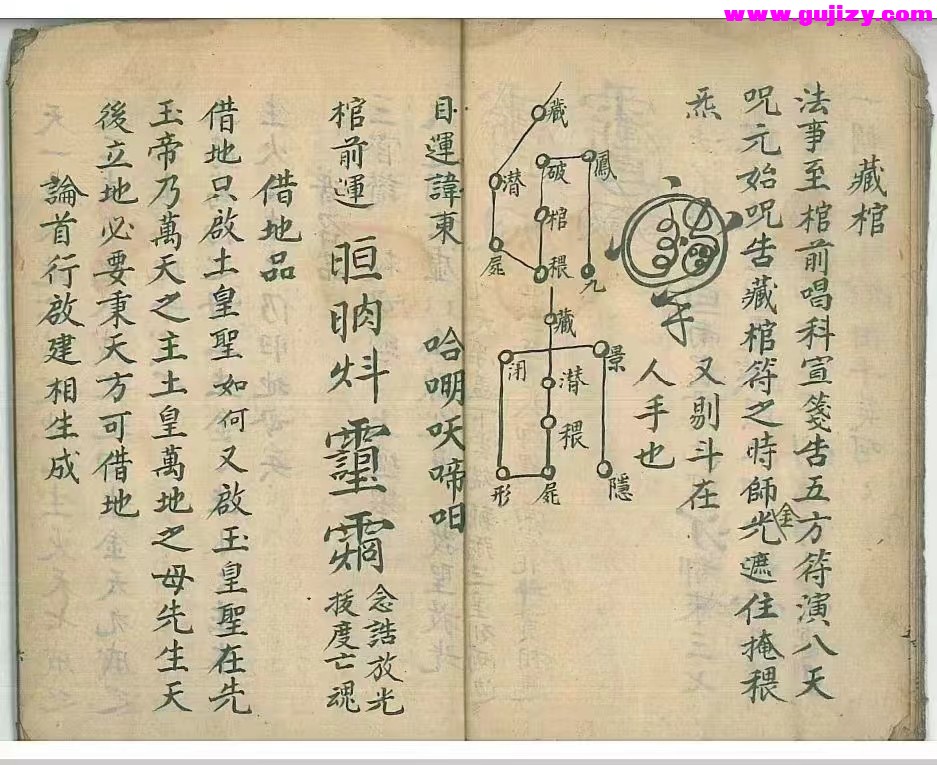 www.gujizy.com
藏棺
法事至棺前唱科宣箋告五方符演八天
咒元始咒告藏棺符之時師金光遮住掩穢
炁
又剔斗在
人手也
鳳
破
棺
穢
九
藏
潜
屍
藏
潜
穢
屍
景
隱
形
目運諱東
棺前運
念誥放光
拔度亡魂
借地品
借地只啟土皇聖如何又啟玉皇聖在先
玉帝乃萬天之主土皇萬地之母先生天
後立地必要秉天方可借地
論首行啟建相生成